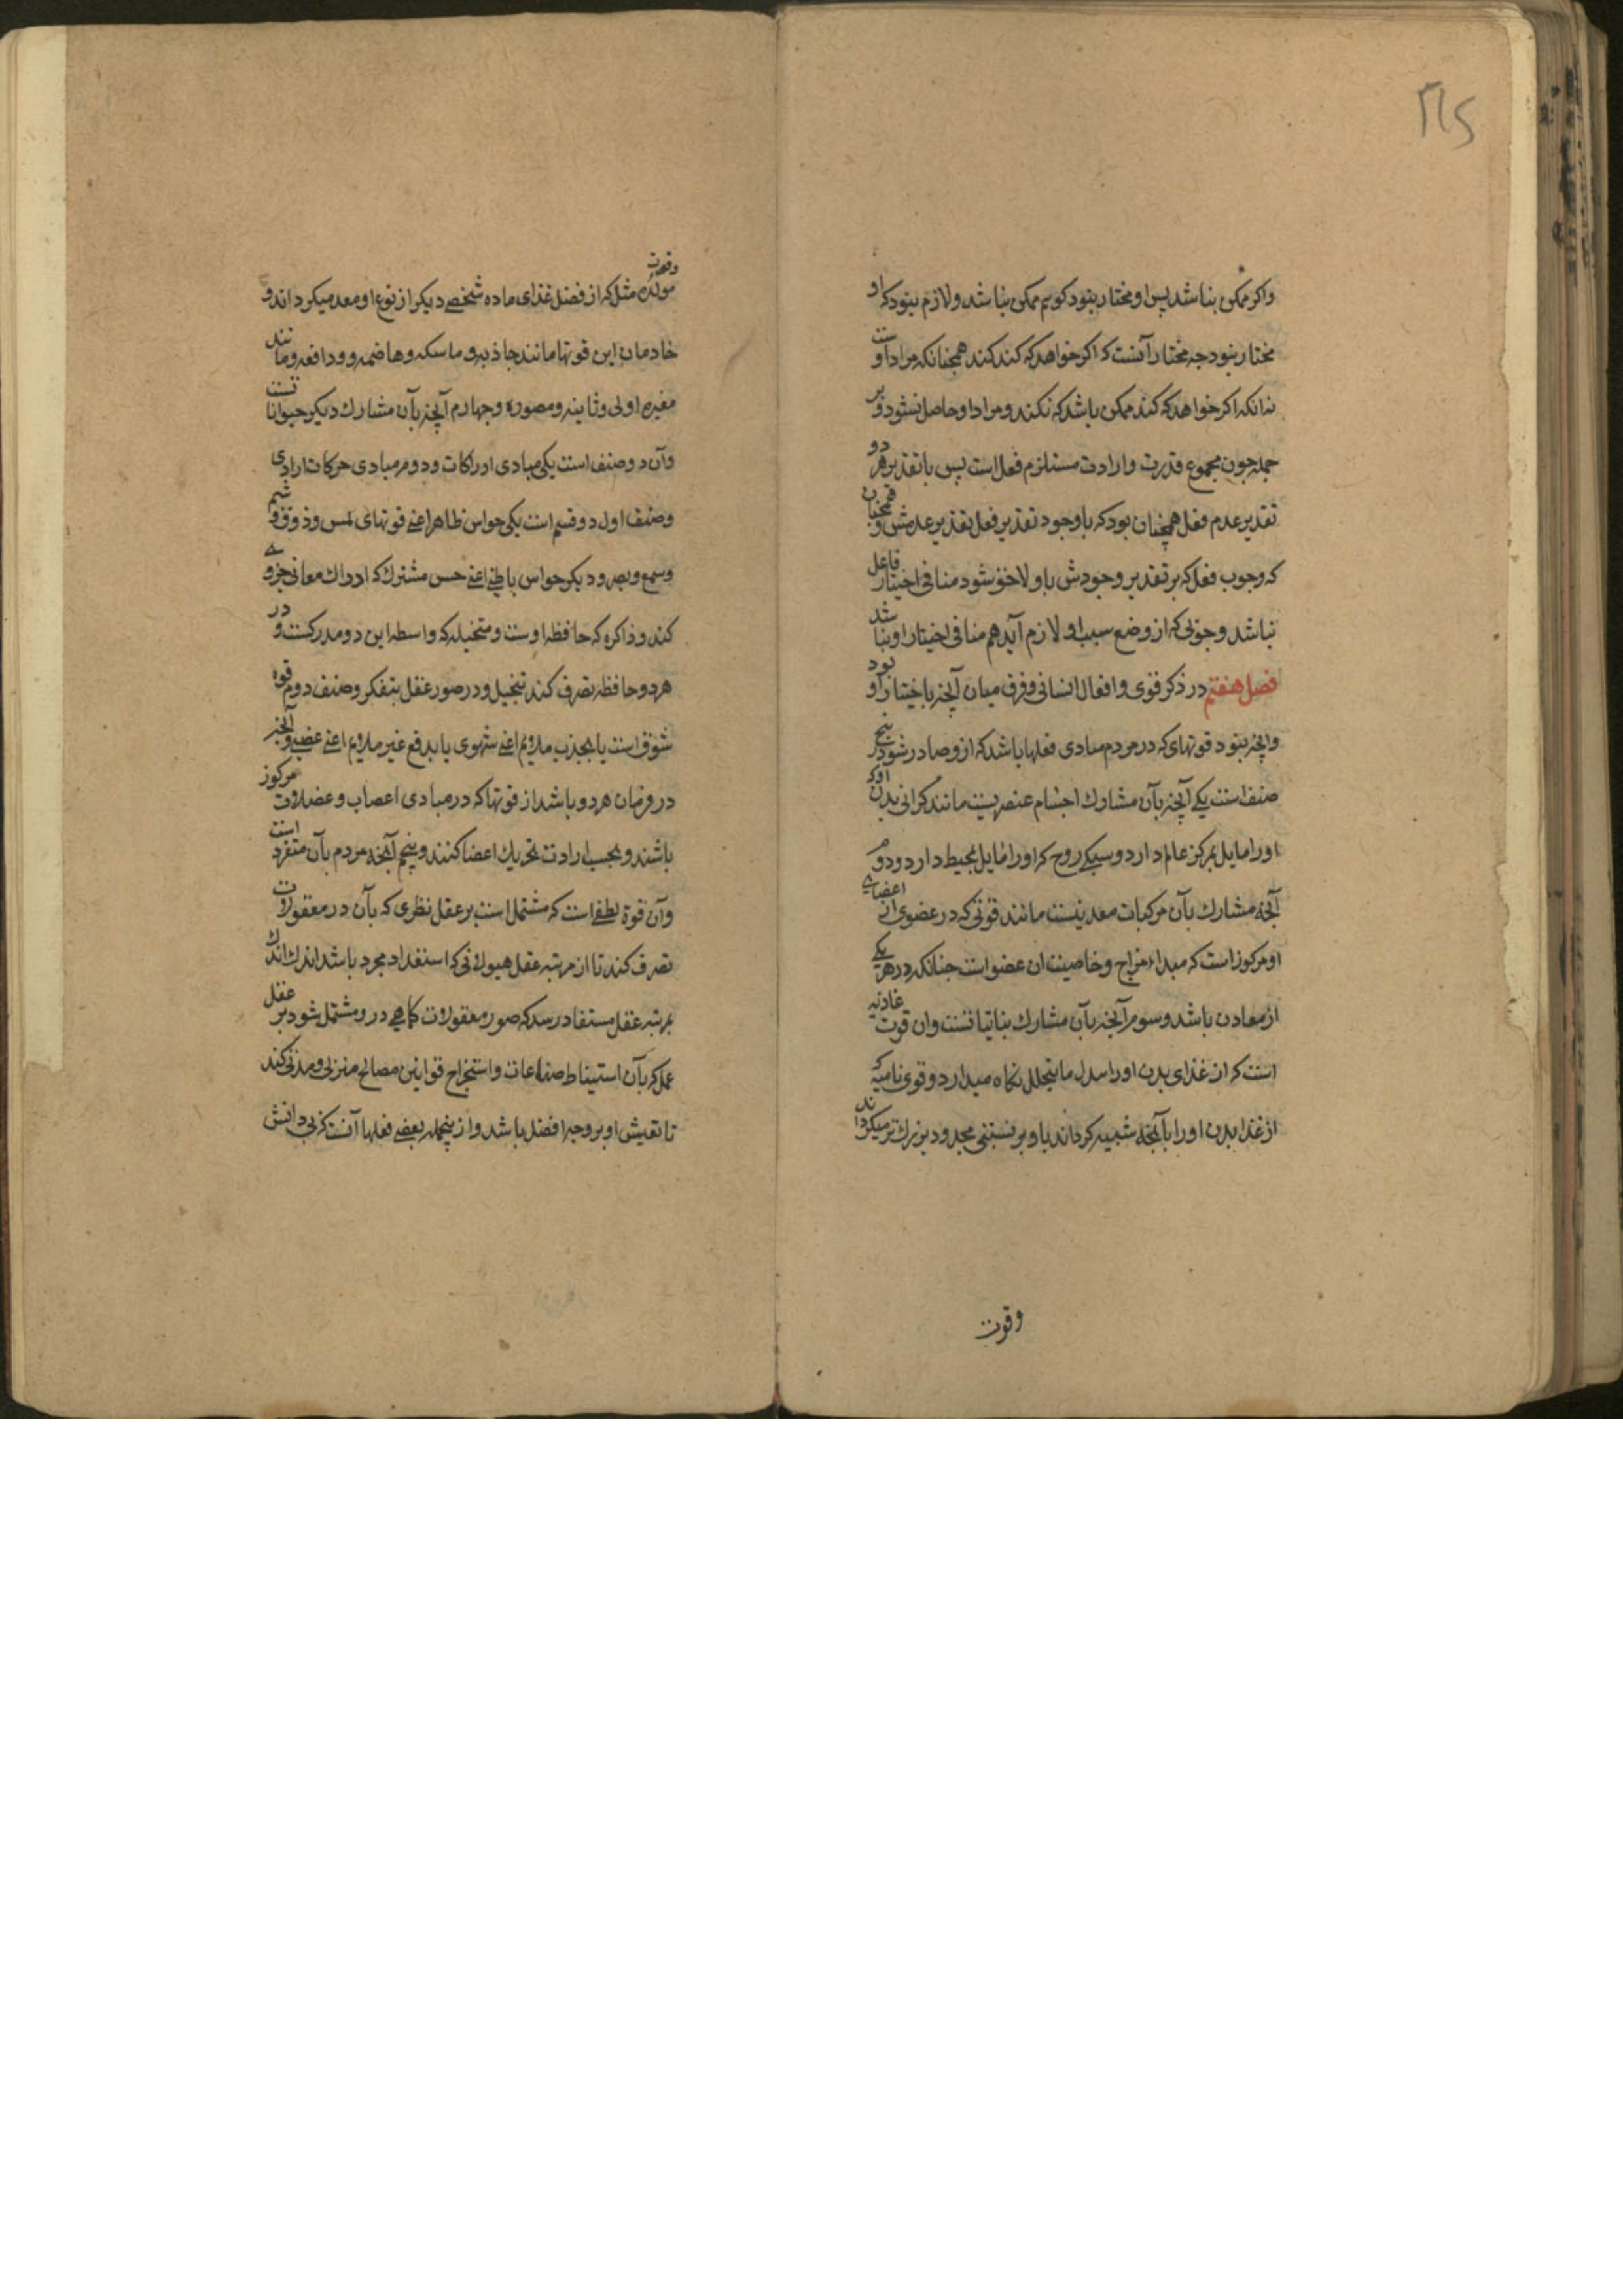 ۳۱۵
واکر ممکن نباشد پس او مختار نبود کویم ممکن نباشد و لازم نبود که او
مختار نبود جه مختار آنست که اکر خواهد که کند کند همجنانکه مراد اوست
نه انکه اکر خواهد که کند ممکن باشد که نکند و مراد او حاصل نشود و بر
جمله جون مجموع قدرت و ارادت مستلزم فعل است پس با تقدیر هر دو
تقدیر عدم فعل همچنان بود که با وجود تقدیر فعل تقدیر عدمش و همچنان
که وجوب فعل که بر تقدیر وجودش باو لاحق شود منافی اختیار فاعل
نباشد وجوبی که از وضع سبب او لازم آید هم منافی اختیار او نباشد
فصل هفتم در ذکر قوی و افعال انسانی و فرق میان آنچه باختیار او بود
وانچه نبود قوتهای که در مردم مبادی فعلها باشد که ازو صادر شود پنج
صنف است یکی آنچه بآن مشارک اجسام عنصریست مانند کرانی بدن او که
او را مایل بمرکز عالم دارد و سبکی روح که او را مایل بمحیط دارد و دوم
آنچه مشارک بآن مرکبات معدنیست مانند قوتی که در عضوی از اعضای
او مرکوز است که مبداء مزاج و خاصیت ان عضو است جنانکه در هر یکی
از معادن باشد و سوم آنچه بآن مشارک نباتیاتست وان قوت غاذیه
است که از غذای بدن او را بدل ما یتحلل نکاه میدارد و قوی نامیه که
از غذا بدن او را بآنچه شبیه کرداند باو بر نسبتی محدود بزرک تر میکرداند
وقوت
وقوت
مولده مثل که از فضل غذای ماده شخصی دیکر از نوع او معد میکرداند و
خادمان این قوتها مانند جاذبه و ماسکه و هاضمه و دافعه و مانند
مغیره اولی و ثانیه و مصوره و جهارم آنچه بآن مشارک دیکر حیواناتست
وآن دو صنف است یکی مبادی ادراکات و دوم مبادی حرکات ارادی
وصنف اول دو قسم است یکی حواس ظاهر اعنی قوتهای لمس و ذوق و شم
وسمع و بصر و دیکر حواس باطنی اعنی حس مشترک که ادراک معانی جزوی
کند و ذاکره که حافظه اوست و متخیله که واسطه این دو مدرکست و در
هر دو حافظه تصرف کند بتخیل و در صور عقل بتفکر و صنف دوم قوه
شوق است یا بجذب ملایم اعنی شهوی یا بدفع غیر ملایم اعنی غضبی و آنچه
در فرمان هر دو باشد از قوتها که در مبادی اعصاب و عضلات مرکوز
باشند و بحسب ارادت تحریک اعضا کنند و پنجم آنچه مردم بآن متفرد است
وآن قوة نطقی است که مشتمل است بر عقل نظری که بآن در معقولات
تصرف کند تا از مرتبه عقل هیولانی که استعداد مجرد باشد اندک اندک
بمرتبه عقل مستفاد رسد که صور معقولات کماهی درو مشتمل شود بر عقل
عملی که بآن استنباط صناعات و استخراج قوانین مصالح منزلی و مدنی کند
تا تعیش او بر وجه افضل باشد و از ینجمله بعضی فعلها آنست که بی دانش